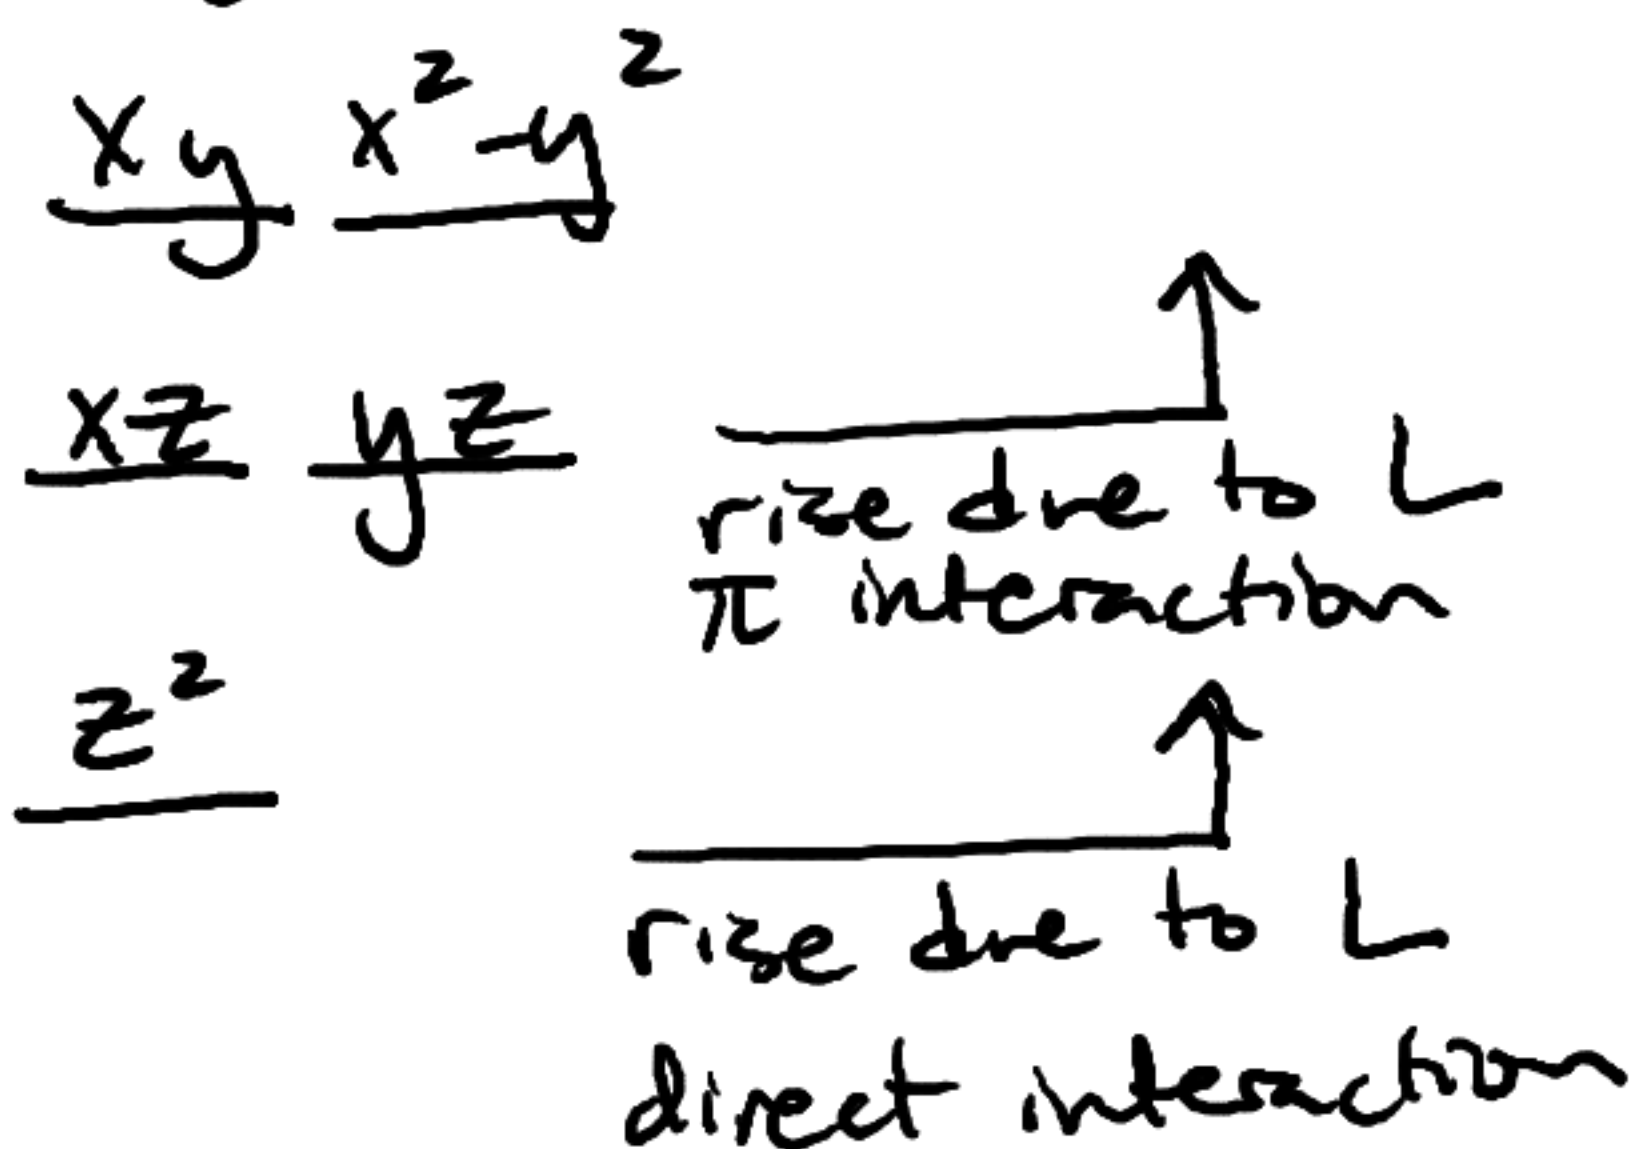 xy x²-y²
xz yz
rise due to L
π interaction
z²
rise due to L
direct interaction